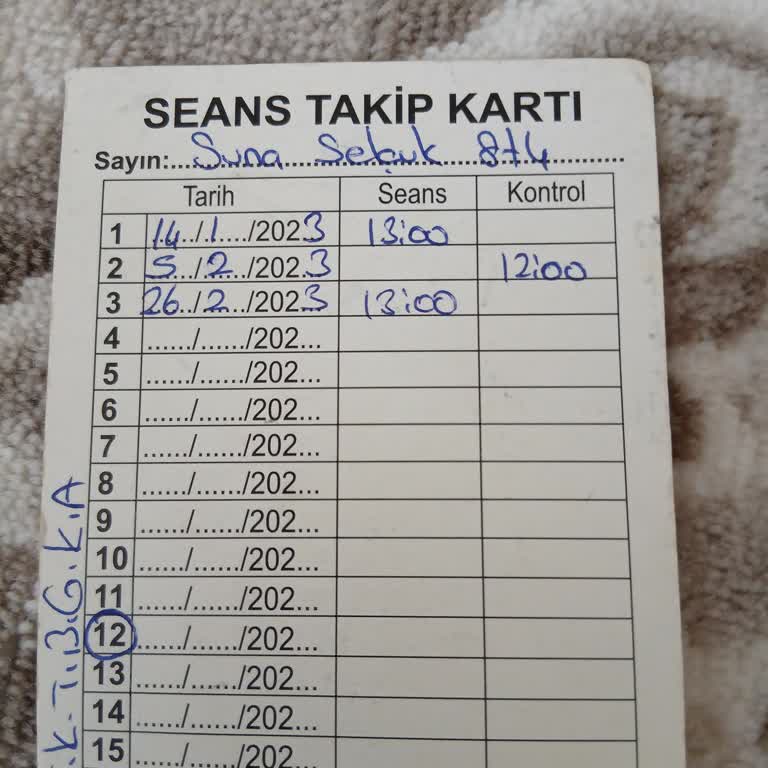 SEANS TAKİP KARTI
Sayın:..... Suna Selçuk 874
Tarih Seans Kontrol
1 14../.1..../2023 13:00
2 5.../.2.../2023 12:00
3 26../.2.../2023 13:00
4 ....../....../202...
5 ....../....../202...
6 ....../....../202...
7 ....../....../202...
8 ....../....../202...
9 ....../....../202...
10 ....../....../202...
11 ....../....../202...
12 ....../....../202...
13 ....../....../202...
14 ....../....../202...
15 ....../....../202...
.K.T.B.G.K.A